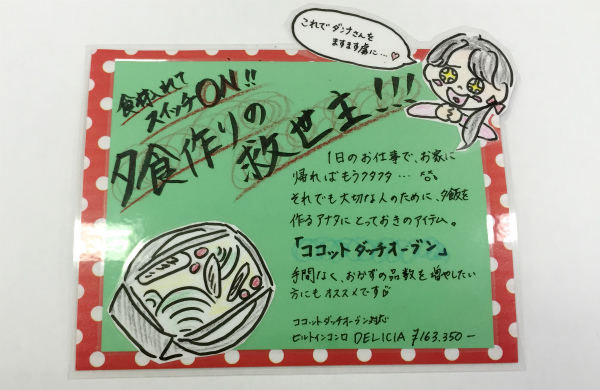 これで ダンナさんを
ますます虜に…♡
食材入れて
スイッチON!!
夕食作りの
救世主!!!
1日のお仕事で、お家に
帰ればもうクタクタ…
それでも大切な人のために、夕飯を
作るアナタにとっておきのアイテム。
「ココットダッチオーブン」
手間なく、おかずの品数を増やしたい
方にもオススメです
ココットダッチオーブン対応
ビルトインコンロ DELICIA ¥163.350-